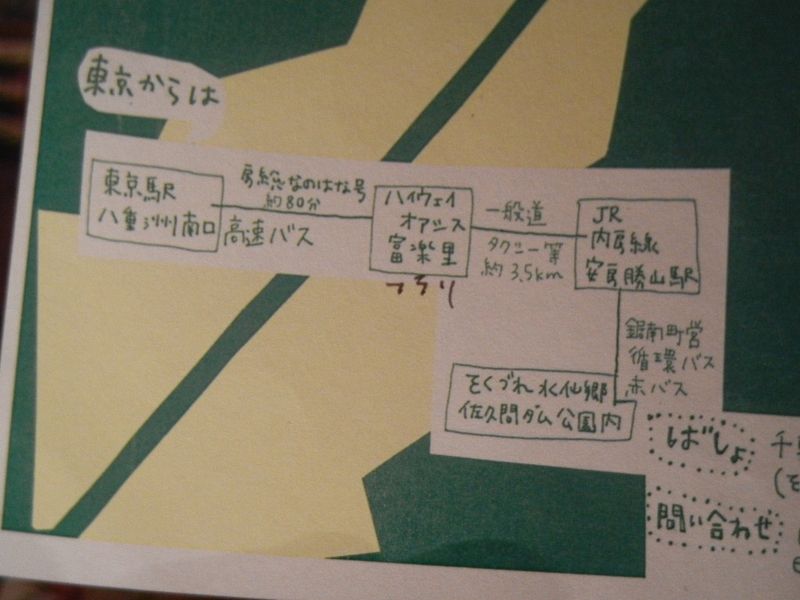 東京からは
東京駅
八重洲南口
房総なのはな号
約80分
高速バス
ハイウェイ
オアシス
富楽里
ふらり
一般道
タクシー等
約3.5km
JR
内房線
安房勝山駅
鋸南町営
循環バス
赤バス
をくづれ水仙郷
佐久間ダム公園内
ばしょ
千
(を
問い合わせ